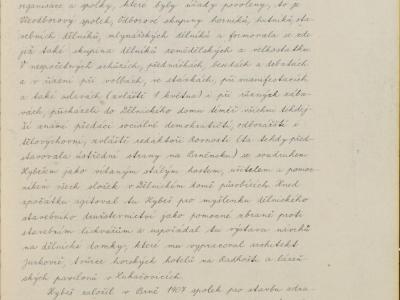 organisace a spolky, které byly úřady povoleny, to je
Všeodborový spolek, Odborové skupiny horníků, hutníků, sta-
vebních dělníků, mlynářských dělníků a formovala se zde
již také skupina dělníků zemědělských a velkostatku.
V nespočetných schůzích, přednáškách, besedách a debatách
a v řízení při volbách, ve stávkách, při manifestacích
a také oslavách (zvláště 1. května) i při různých zába-
vách, přicházeli do Dělnického domu téměř všichni tehdej-
ší známí předáci sociálně demokratičtí, odborářští i
tělovýchovní, zvláště redaktoři Rovnosti (ta tehdy před-
stavovala ústřední strany na Brněnsku) se soudruhem
Hybešem jako vítaným stálým hostem, učitelem a pomoc-
níkem všech složek v Dělnickém domě působících. Hned
zpočátku agitoval tu Hybeš pro myšlenku dělnického
stavebního družstevnictví jako pomocné zbraně proti
stavebním lichvářům a uspořádal tu výstavu návrhů
na dělnické domky, které mu vypracoval architekt
Jurkovič, tvůrce horských hotelů na Radhošti a lázeň-
ských pavilonů v Luhačovicích.
Hybeš založil v Brně 1907 spolek pro stavbu zdra-